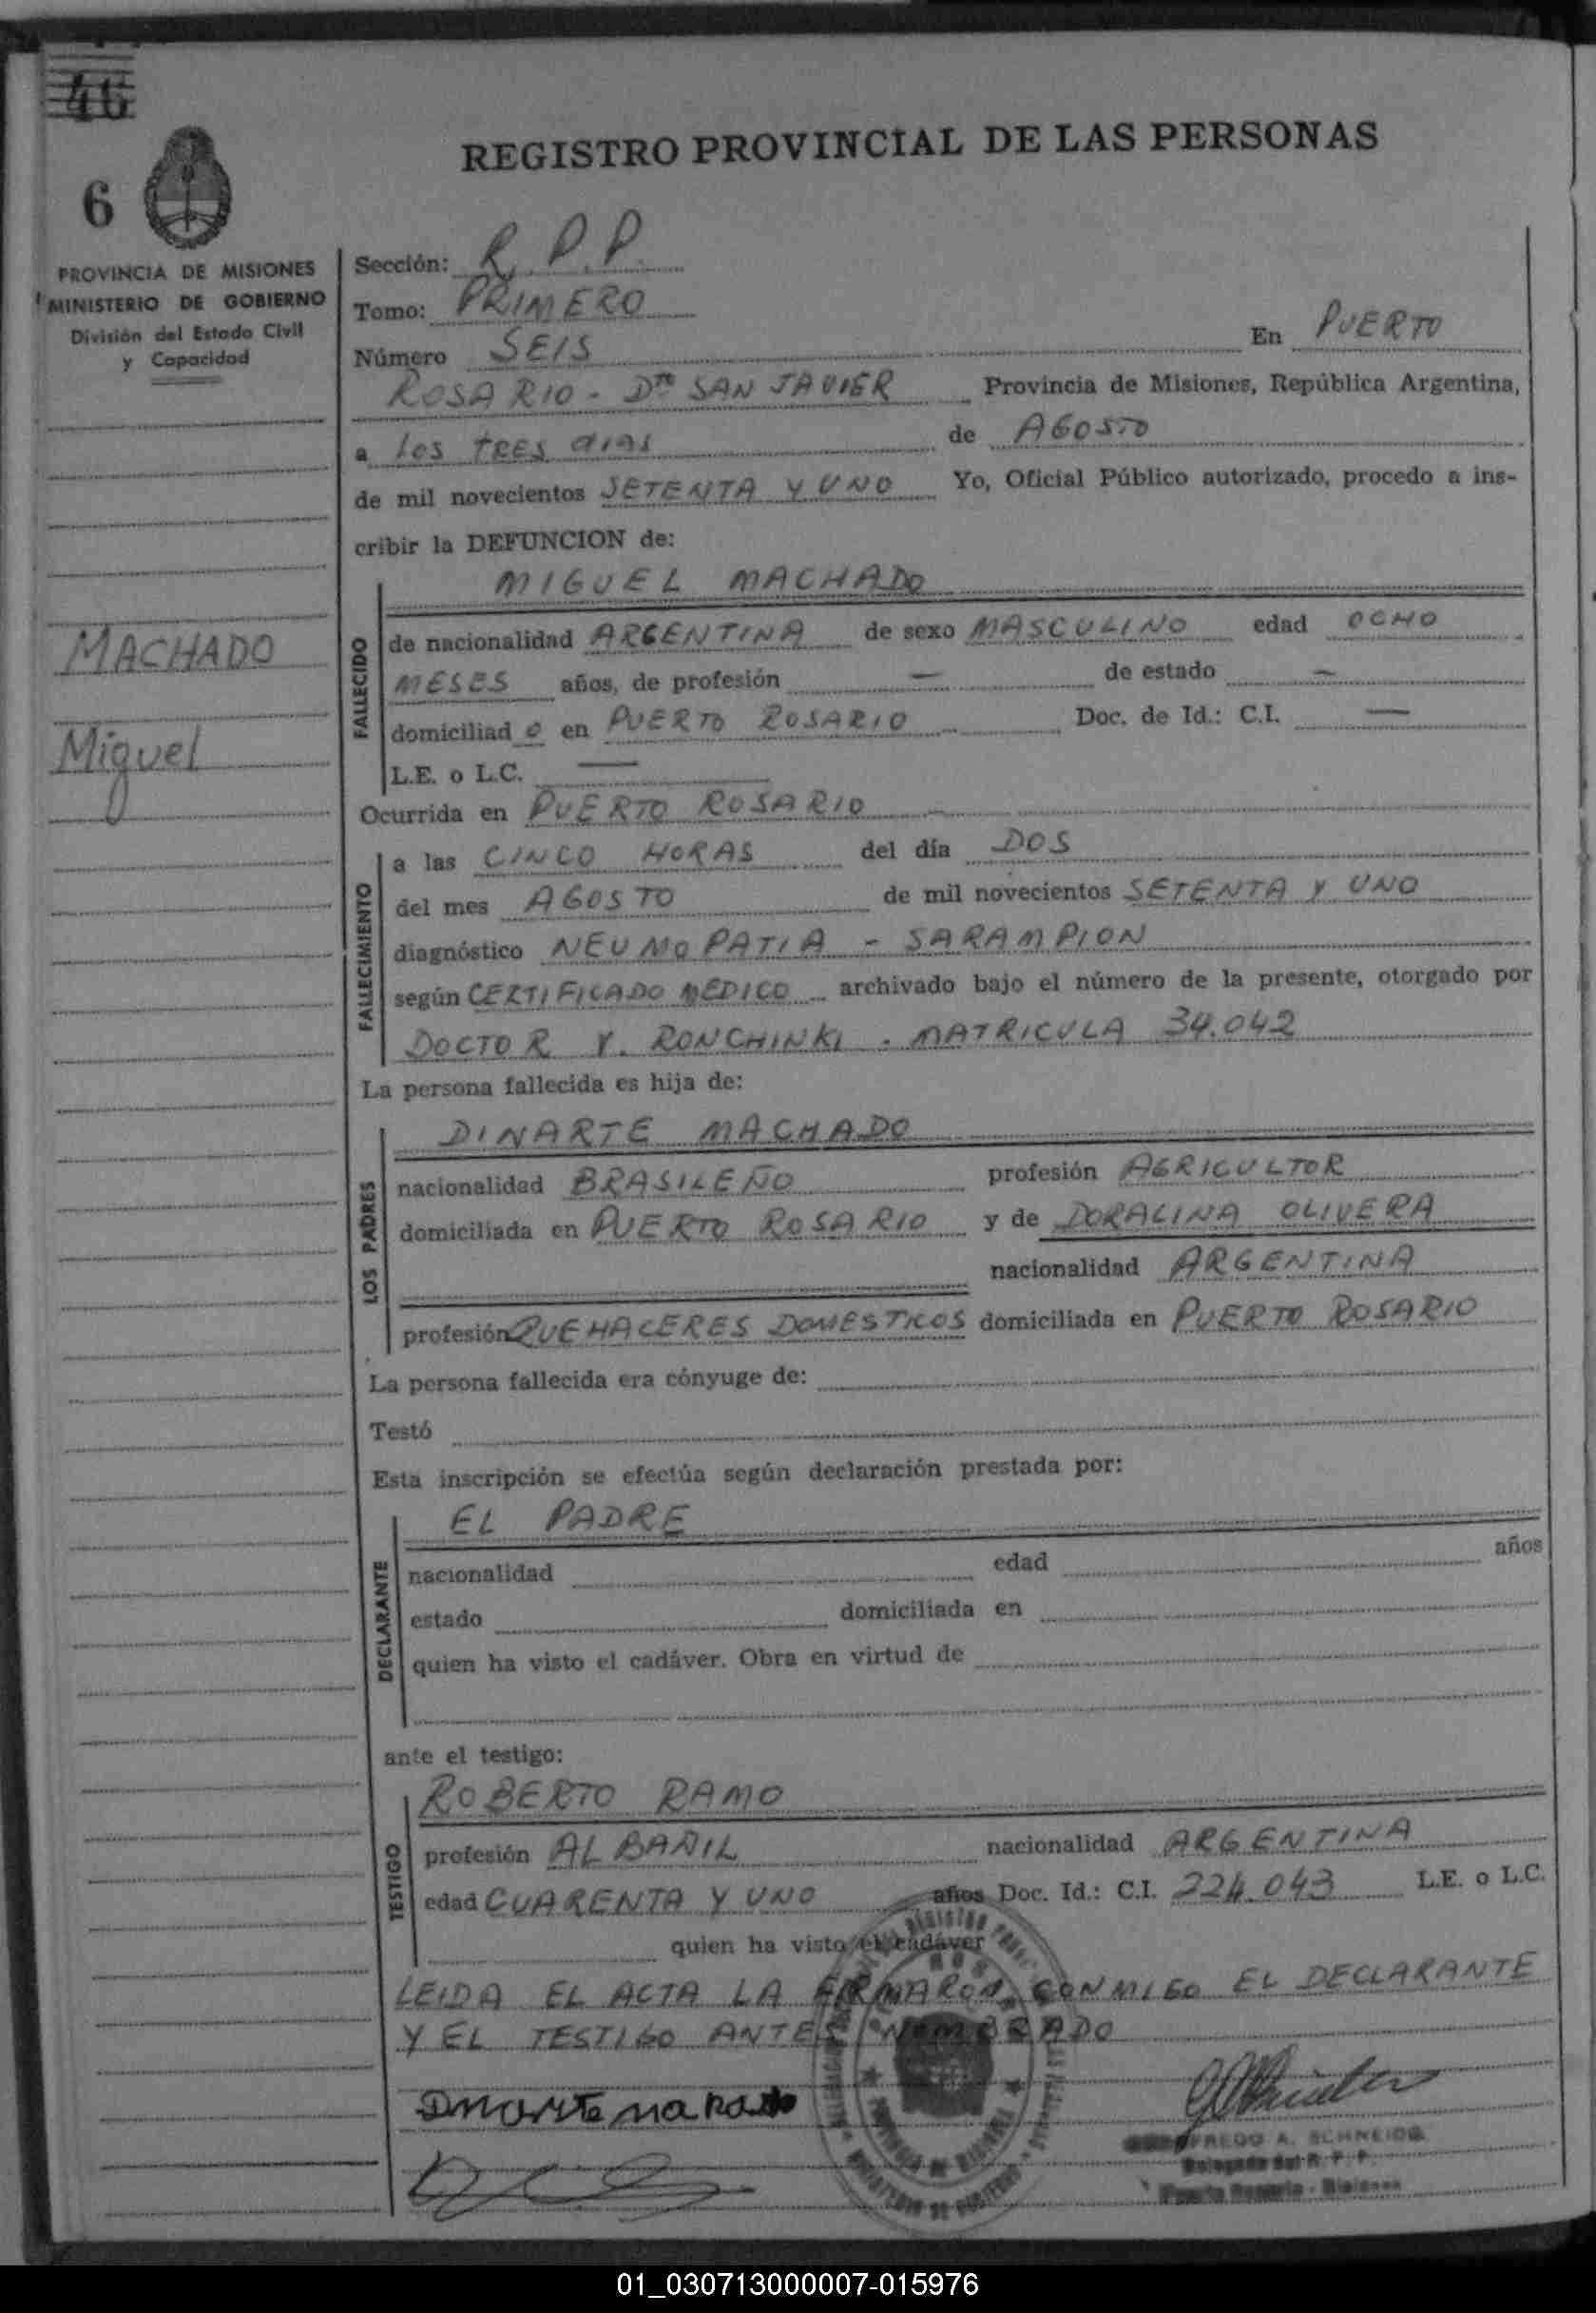 46
6
REGISTRO PROVINCIAL DE LAS PERSONAS
PROVINCIA DE MISIONES
MINISTERIO DE GOBIERNO
División del Estado Civil
y Capacidad
MACHADO
Miguel
Sección: R. P. P.
Tomo: PRIMERO
Número SEIS En PUERTO
ROSARIO - Dto SAN JAVIER Provincia de Misiones, República Argentina,
a los tres dias de AGOSTO
de mil novecientos SETENTA Y UNO Yo, Oficial Público autorizado, procedo a ins-
cribir la DEFUNCION de:
FALLECIDO
MIGUEL MACHADO
de nacionalidad ARGENTINA de sexo MASCULINO edad OCHO
MESES años, de profesión — de estado —
domiciliad o en PUERTO ROSARIO Doc. de Id.: C.I. —
L.E. o L.C. —
Ocurrida en PUERTO ROSARIO
FALLECIMIENTO
a las CINCO HORAS del día DOS
del mes AGOSTO de mil novecientos SETENTA Y UNO
diagnóstico NEUMOPATIA - SARAMPION
según CERTIFICADO MEDICO archivado bajo el número de la presente, otorgado por
DOCTOR V. RONCHINKI . MATRICULA 34.042
La persona fallecida es hija de:
LOS PADRES
DINARTE MACHADO
nacionalidad BRASILEÑO profesión AGRICULTOR
domiciliada en PUERTO ROSARIO y de DORALINA OLIVERA
nacionalidad ARGENTINA
profesión QUEHACERES DOMESTICOS domiciliada en PUERTO ROSARIO
La persona fallecida era cónyuge de:
Testó
Esta inscripción se efectúa según declaración prestada por:
DECLARANTE
EL PADRE
nacionalidad edad años
estado domiciliada en
quien ha visto el cadáver. Obra en virtud de
ante el testigo:
TESTIGO
ROBERTO RAMO
profesión ALBAÑIL nacionalidad ARGENTINA
edad CUARENTA Y UNO años Doc. Id.: C.I. 224.043 L.E. o L.C.
quien ha visto el cadáver
LEIDA EL ACTA LA FIRMARON CONMIGO EL DECLARANTE
Y EL TESTIGO ANTES NOMBRADO
A. SCHNEIDER
Delegado del R. P. P.
Puerto Rosario - Misiones
01_030713000007-015976